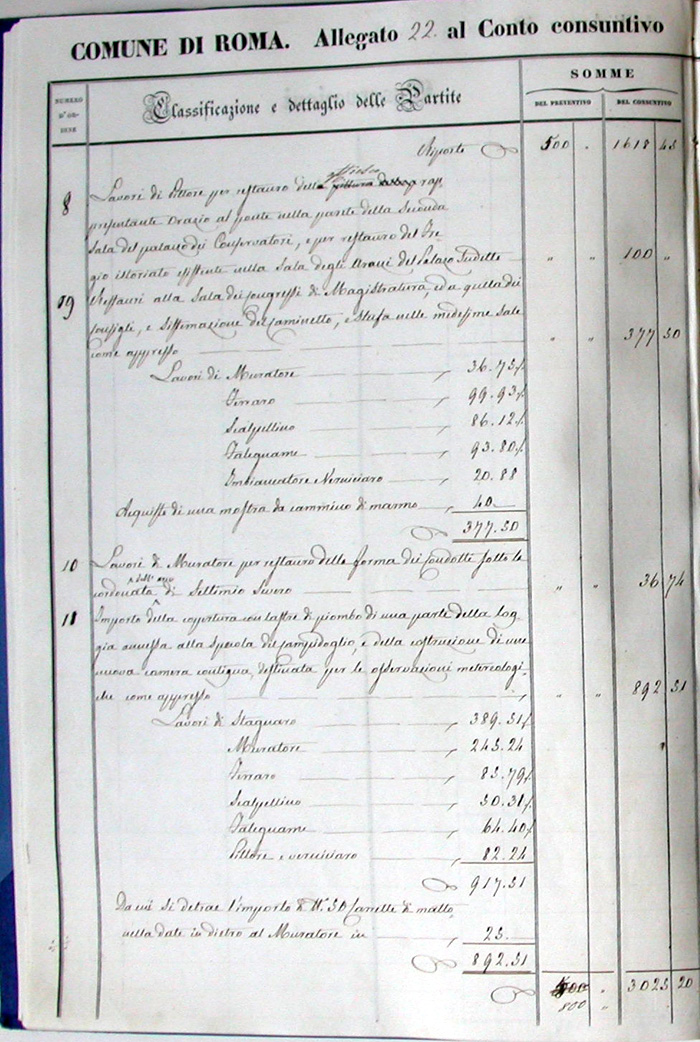 COMUNE DI ROMA. Allegato 22. al Conto consuntivo
NUMERO D'ORDINE
Classificazione e dettaglio delle Partite
SOMME
DEL PREVENTIVO DEL CONSUNTIVO
Riporto 500 . 1618 43
8 Lavori di Pittore per restauro dell' affresco rap-
presentante Orazio al ponte nella parete della Seconda
Sala del palazzo dei Conservatori, e per restauro del Fre-
gio istoriato esistente nella Sala degli Arazzi del Palazzo sudetto " " 100 "
9 Restauri alla Sala dei congressi di Magistratura, ed a quella dei
Consigli, e sistemazione del caminetto, e stufa nelle medesime sale
come appresso " " 377 50
Lavori di Muratore 36.75½
Ferraro 99.93½
Scalpellino 86.12½
Falegname 93.80½
Imbiancatore Verniciaro 20.88
Acquisto di una mostra da cammino di marmo 40.
377.50
10 Lavori di Muratore per restauro delle forma dei Condotti sotto la
cordonata dell' arco di Settimio Severo " " 36 74
11 Importo della copertura con lastre di piombo di una parte della log-
gia annessa alla Specola del Campidoglio, e della costruzione di una
nuova camera contigua, destinata per le osservazioni metereologi-
che come appresso " " 892 51
Lavori di Stagnaro 389.51½
Muratore 245.24
Ferraro 85.79½
Scalpellino 50.31½
Falegname 64.40½
Pittore e verniciaro 82.24
917.51
Da cui si detrae l'importo di N. 50 Carrette di matto-
nella date in dietro al Muratore in 25.
892.51
800 " 3025 20